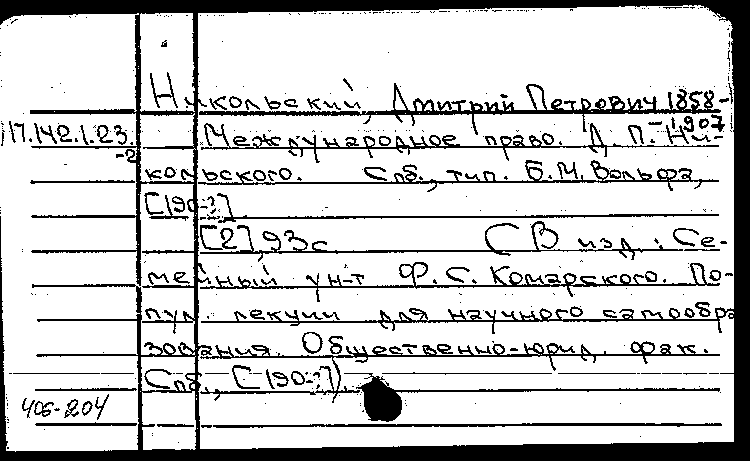 Никольский, Дмитрий Петрович 1858-
-1907
17.142.1.23.
-2
Международное право. Д. П. Ни-
кольского. Спб., тип. Б.М. Вольфа,
[190-?]
[2], 93 с (СВ изд.: Се-
мейный ун-т Ф. С. Комарского. По-
пул. лекции для научного самообра
зования. Общественно-юрид. фак.
Спб., [190-?]).
406-204